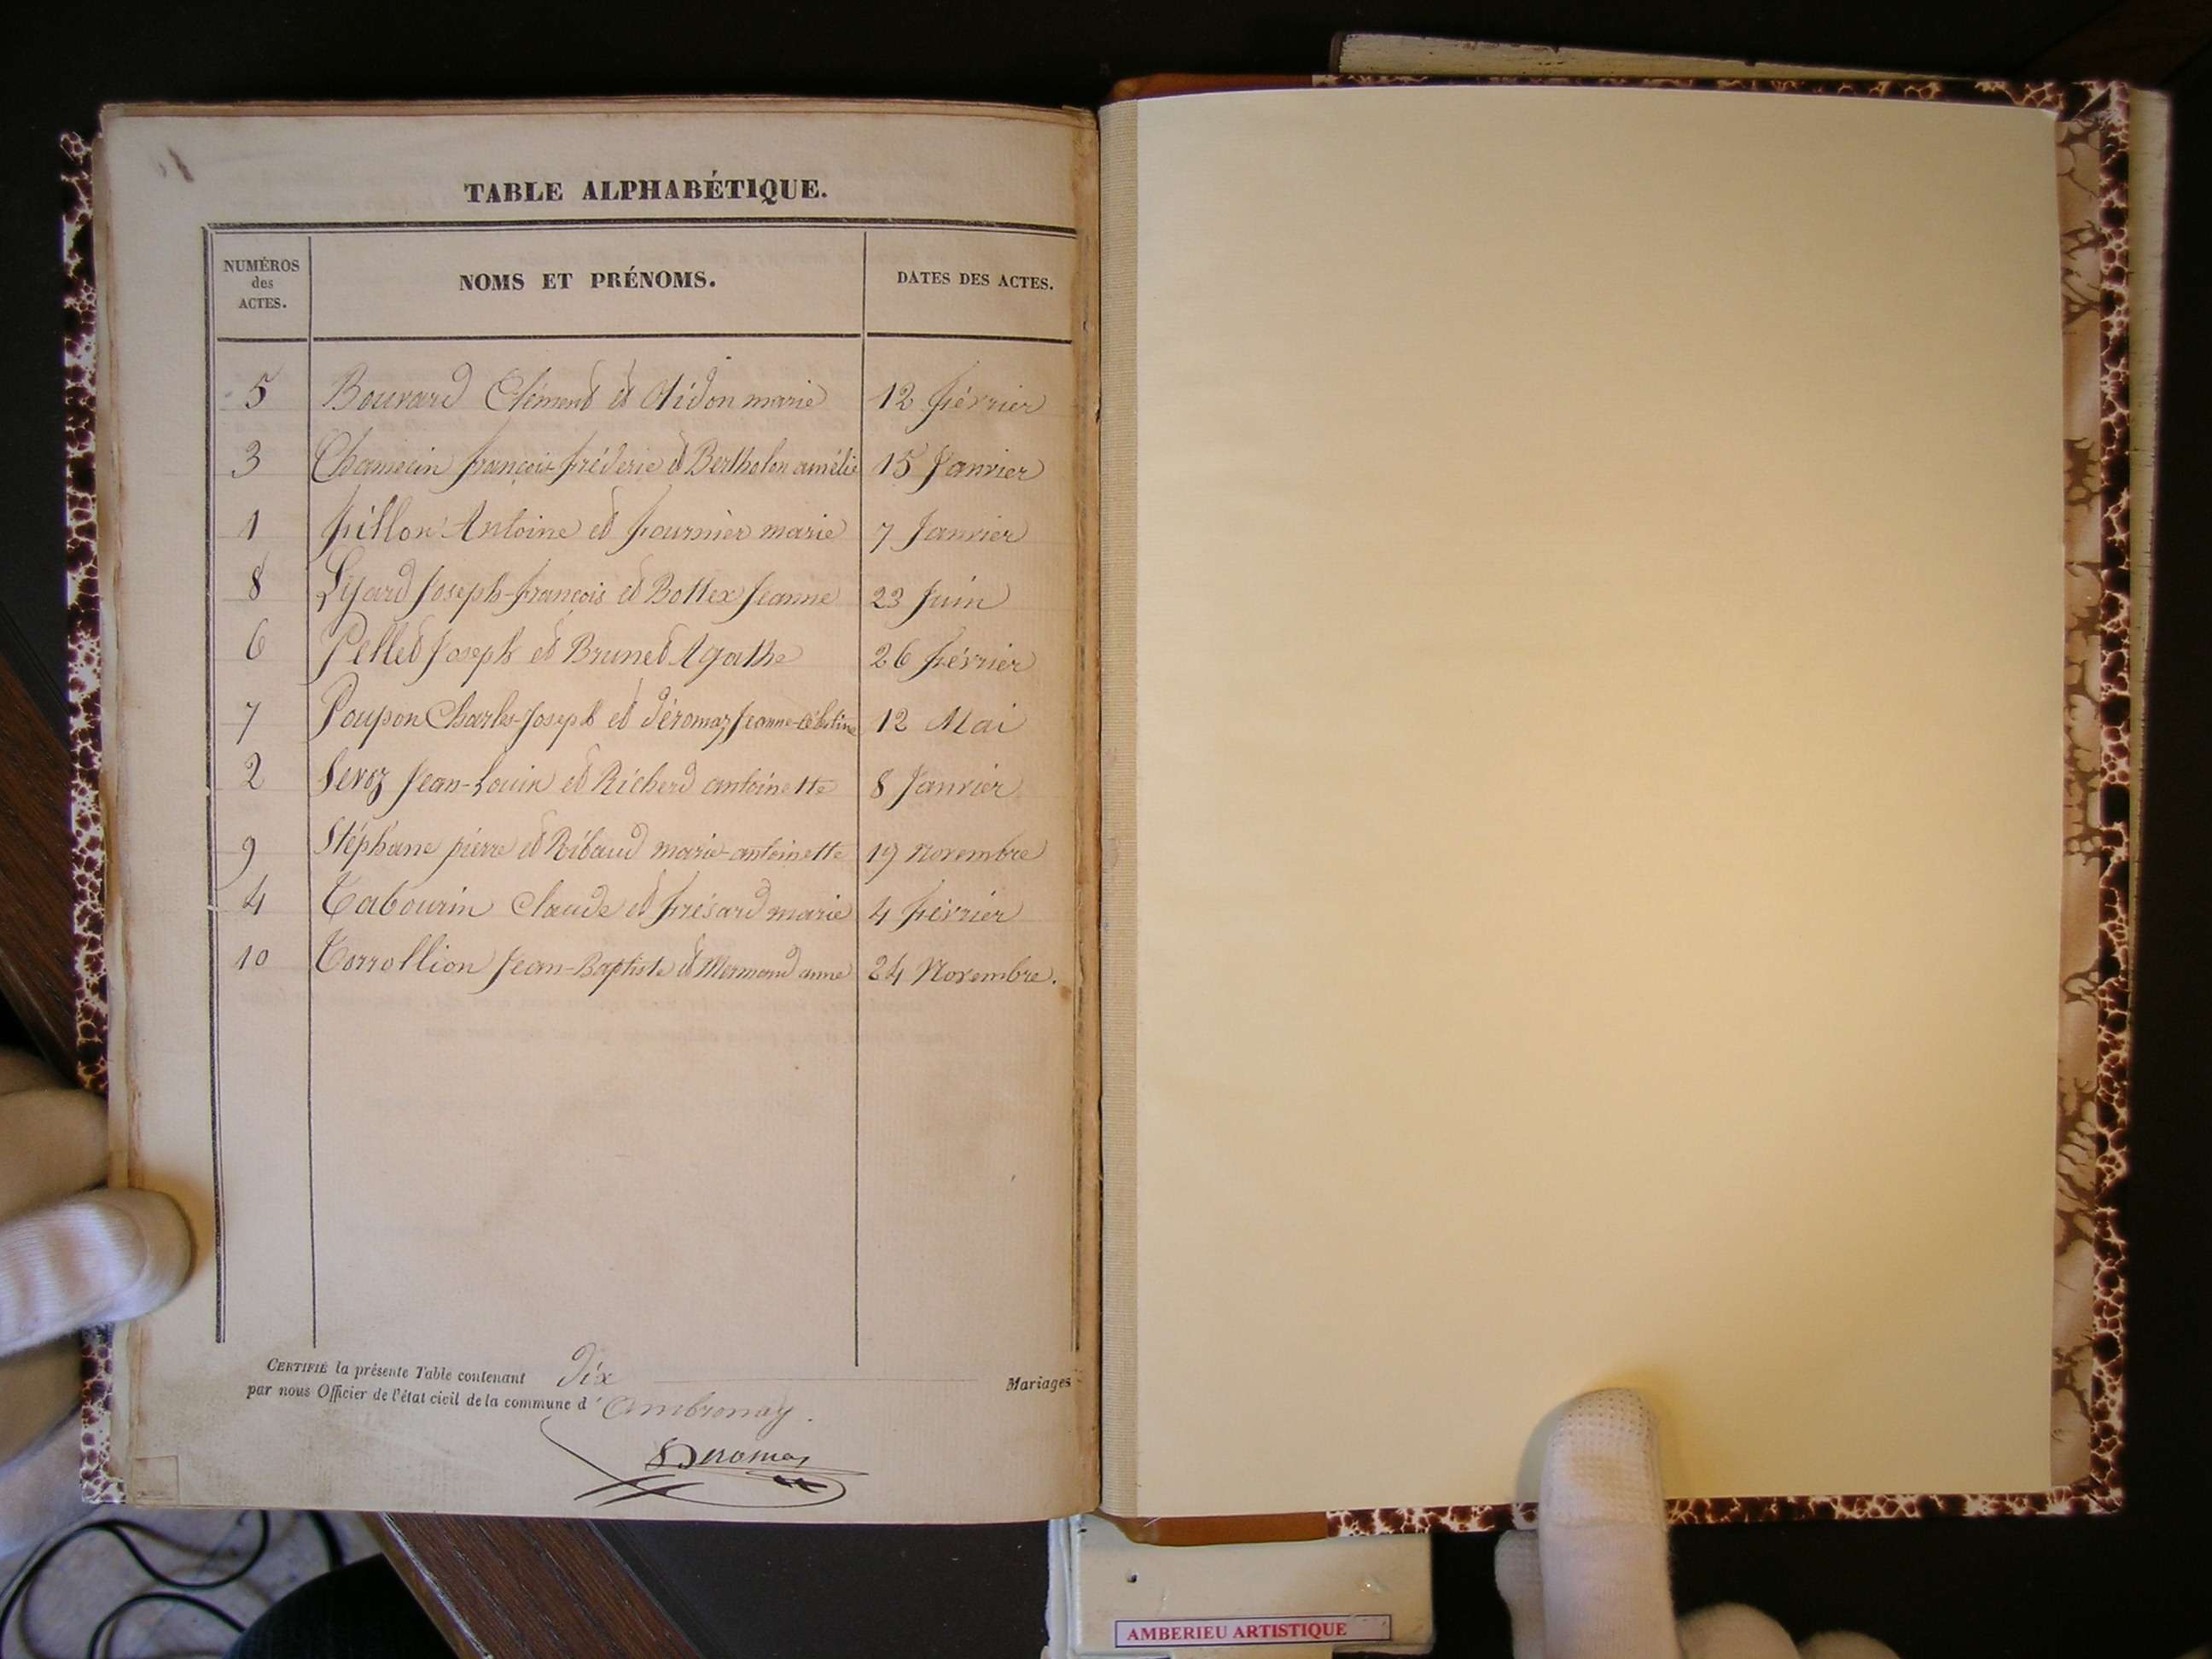 TABLE ALPHABÉTIQUE.
NUMÉROS des ACTES. NOMS ET PRÉNOMS. DATES DES ACTES.
5 Bouvard Clément et Didon marie 12 février
3 François-fréderic et Bertholon amélie 15 Janvier
1 fillon Antoine et fournier marie 7 Janvier
8 Lyard Joseph-françois et Bottex Jeanne 23 Juin
6 Pellet Joseph et Brunet Agathe 26 février
7 Poupon Charles-Joseph et Déromaz Jeanne-Célestine 12 Mai
2 Servoz Jean-Louis et Richerd antoinette 8 Janvier
9 Stéphane pierre et Ribaud marie-antoinette 19 novembre
4 Tabourin Claude et frésard marie 4 février
10 Torrollion Jean-Baptiste et Mermand anne 24 Novembre.
CERTIFIÉ la présente Table contenant Dix Mariages
par nous Officier de l'état civil de la commune d'Ambronay.
Deromas
AMBERIEU ARTISTIQUE